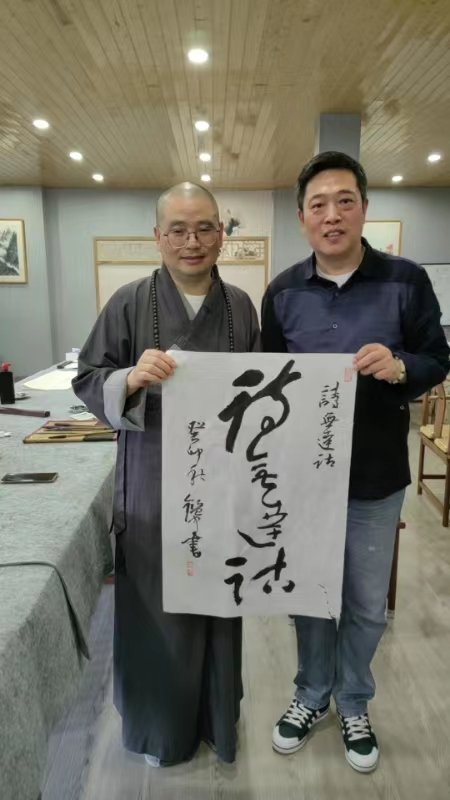 詩無達詁
詩無達詁
癸卯秋 書